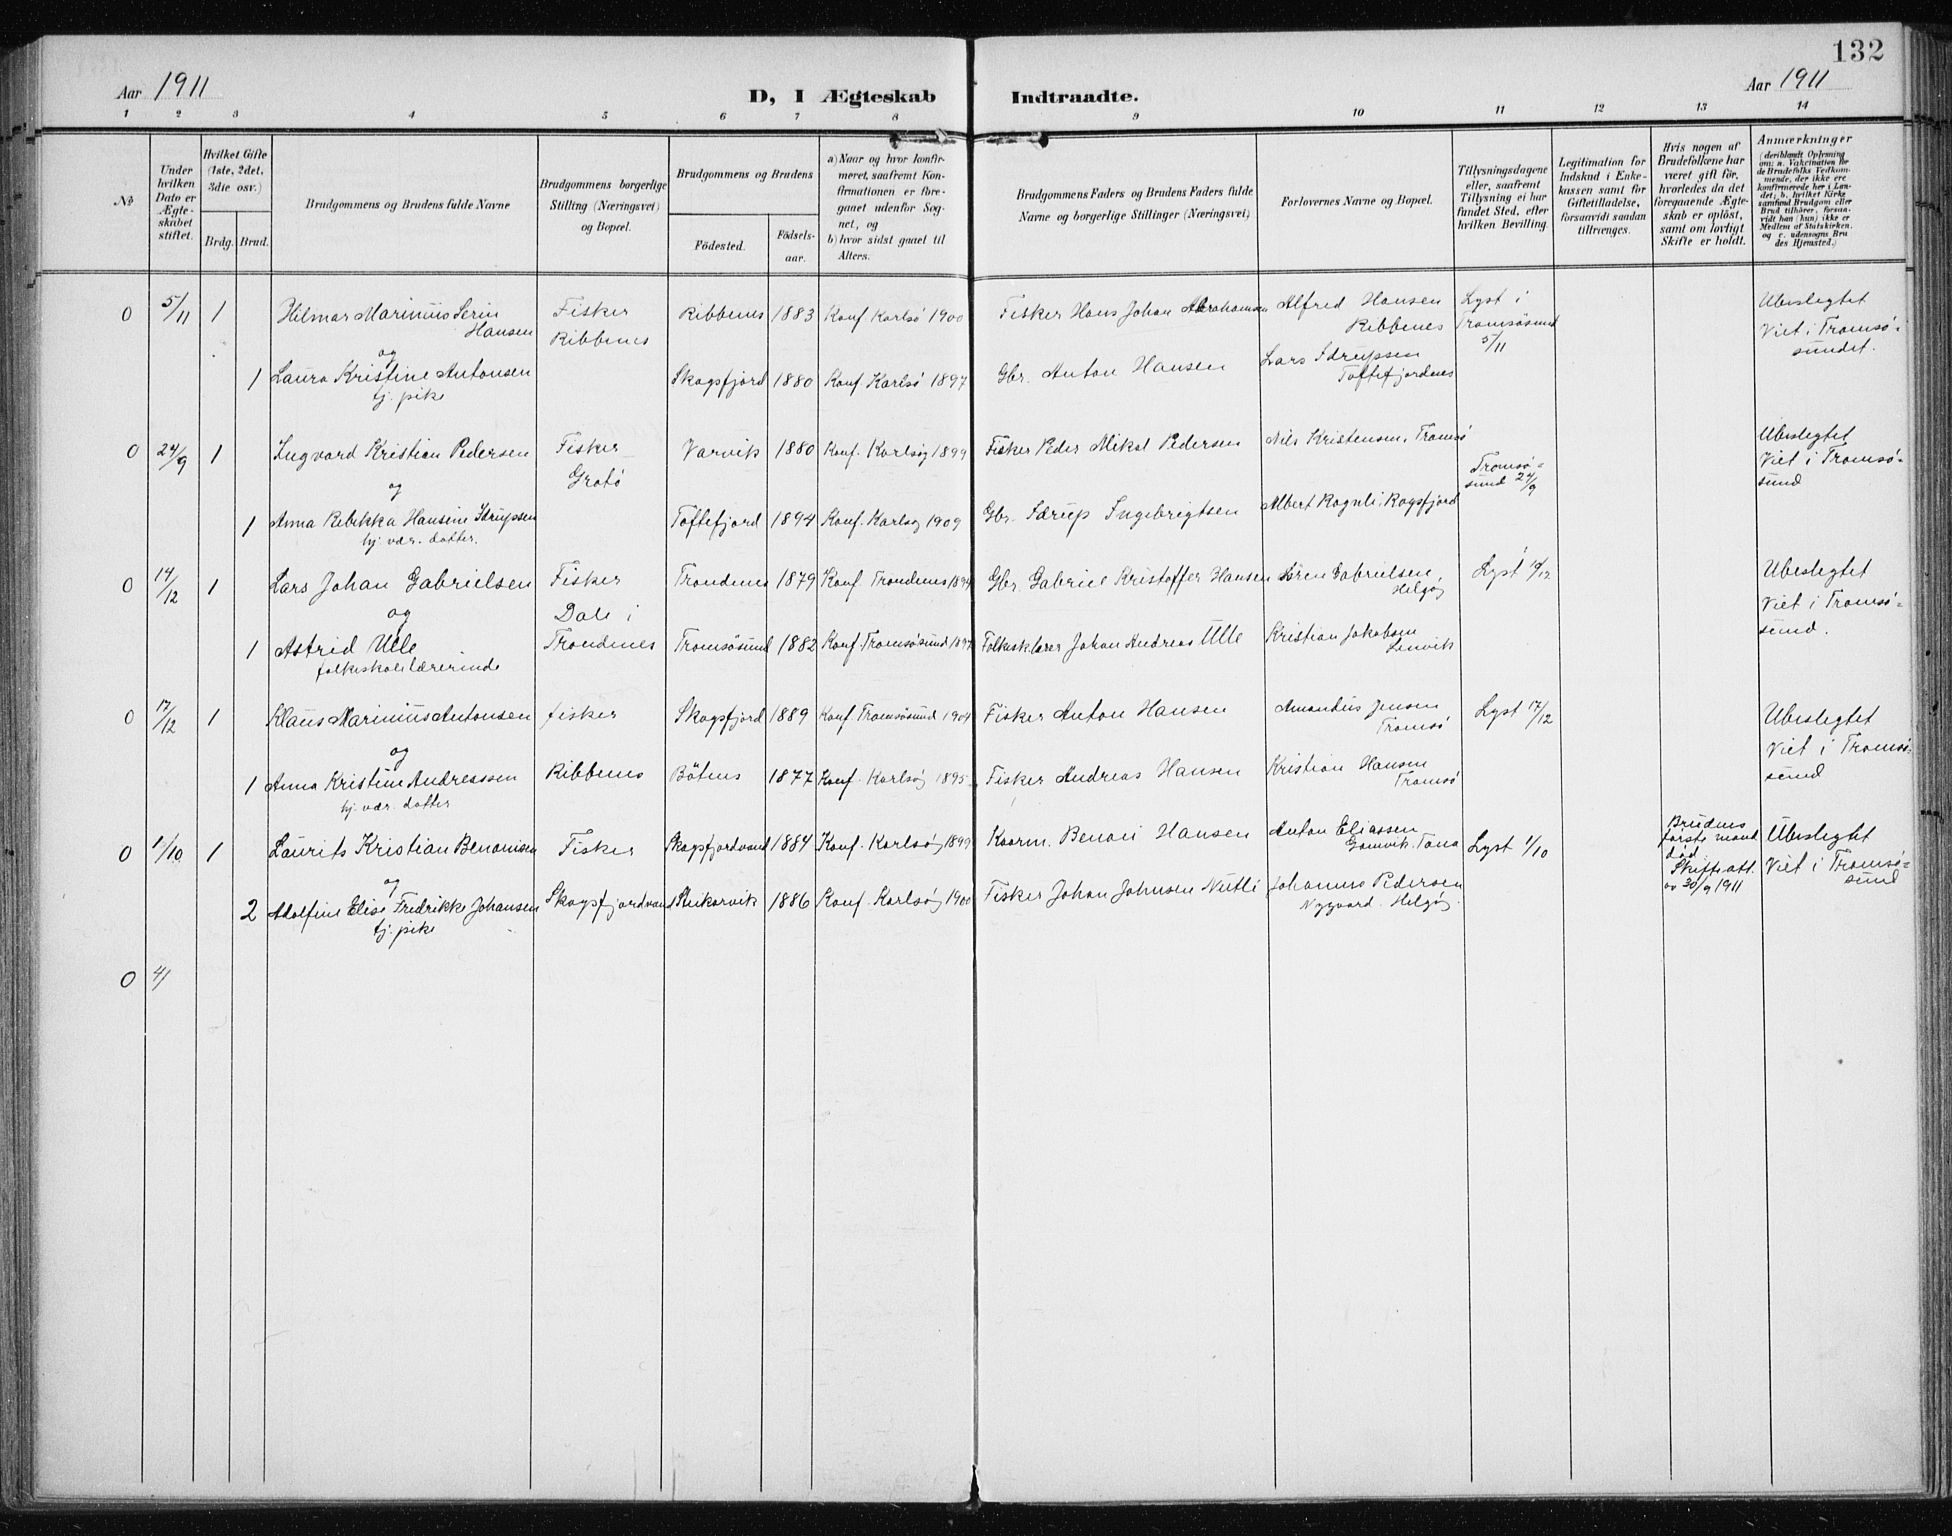 132
Aar 1911
D, I Ægteskab Indtraadte.
Aar 1911
1 2 3 4 5 6 7 8 9 10 11 12 13 14
№
Under hvilken Dato er Ægteskabet stiftet.
Hvilket Gifte (1ste, 2det, 3die osv.)
Brdg. Brud.
Brudgommens og Brudens fulde Navne
Brudgommens borgerlige Stilling (Næringsvei) og Bopæl.
Brudgommens og Brudens
Födested.
Födselsaar.
a) Naar og hvor konfirmeret, saafremt Konfirmationen er foregaaet udenfor Sognet, og
b) hvor sidst gaaet til Alters.
Brudgommens Faders og Brudens Faders fulde Navne og borgerlige Stillinger (Næringsvei)
Forlovernes Navne og Bopæl.
Tillysningsdagene eller, saafremt Tillysning ei har fundet Sted, efter hvilken Bevilling.
Legitimation for Indskud i Enkekassen samt for Giftetilladelse, forsaavidt saadan tiltrænges.
Hvis nogen af Brudefolkene har været gift før, hvorledes da det foregaaende Ægteskab er oplöst, samt om lovligt Skifte er holdt.
Anmærkninger
(deriblandt Oplysning om: a. Vakcination for de Brudefolks Vedkommende, der ikke ere konfirmerede her i Landet; b. hvilket Kirkesamfund Brudgom eller Brud tilhører, forsaavidt han (hun) ikke er Medlem af Statskirken, og c. udensogns Brudes Hjemsted.)
0 5/11 1 Hilmar Marinius Serin Hansen Fisker Ribbenes Ribbenes 1883 Konf Karlsö 1900 Fisker Hans Johan Abrahamsen Alfred Hansen Ribbenes Lyst i Tromsösund 5/11 Ubeslegtet Viet i Tromsösundet.
og
1 Laura Kristine Antonsen tj. pike Skogsfjord 1880 Konf Karlsö 1897 Gbr. Anton Hansen Lars Idrupsen Toftefjordnes
0 24/9 1 Ingvard Kristian Pedersen Fisker Grotö Varvik 1880 Konf. Karlsøy 1899 Fisker Peder Mikal Pedersen Nils Kristensen, Tromsö Tromsösund 24/9 Ubeslegtet Viet i Tromsösund
og
1 Anna Rebikka Hansine Idrupsen hj. vær. datter. Toftefjord 1894 Konf. Karlsøy 1909 Gbr. Idrup Ingebrigtsen Albert Rognli, Kogsfjord
0 14/12 1 Lars Johan Gabrielsen Fisker Dale i Trondenes Trondenes 1879 Konf Trondenes 1894 Gbr. Gabriel Kristoffer Hansen Sören Gabrielsen, Helgøy Lyst 14/12 Ubeslegtet Viet i Tromsösund.
og
1 Astrid Ulle folkeskolelærerinde Tromsösund 1882 Konf. Tromsösund 1897 Folkesklærer Johan Andreas Ulle Kristian Jakobsen Lenvik
0 17/12 1 Klaus Marinius Antonsen fisker Ribbenes Skogsfjord 1889 Konf Tromsösund 1904 Fisker Anton Hansen Amandus Jensen Tromsö Lyst 17/12 Ubeslegtet Viet i Tromsösund
og
1 Anna Kristine Andreassen hj. vær. datter Bötnes 1877 Konf. Karlsøy 1895 Fisker Andreas Hansen Kristian Hansen Tromsö
0 1/10 1 Laurits Kristian Benonisen Fisker Skogsfjordvand Skogsfjordvand 1884 Konf. Karlsøy 1899 Kaarm. Benoni Hansen Anton Eliassen Gamvik. Tana Lyst 1/10 Brudens første mand død Skifteatt. av 30/9 1911 Ubeslegtet Viet i Tromsösund
og
2 Adolfine Elise Fredrikke Johansen tj. pike 1886 Konf. Karlsøy 1900 Fisker Johan Johnsen Nutli Johannes Pedersen Nygaard. Helgøy.
0 4/